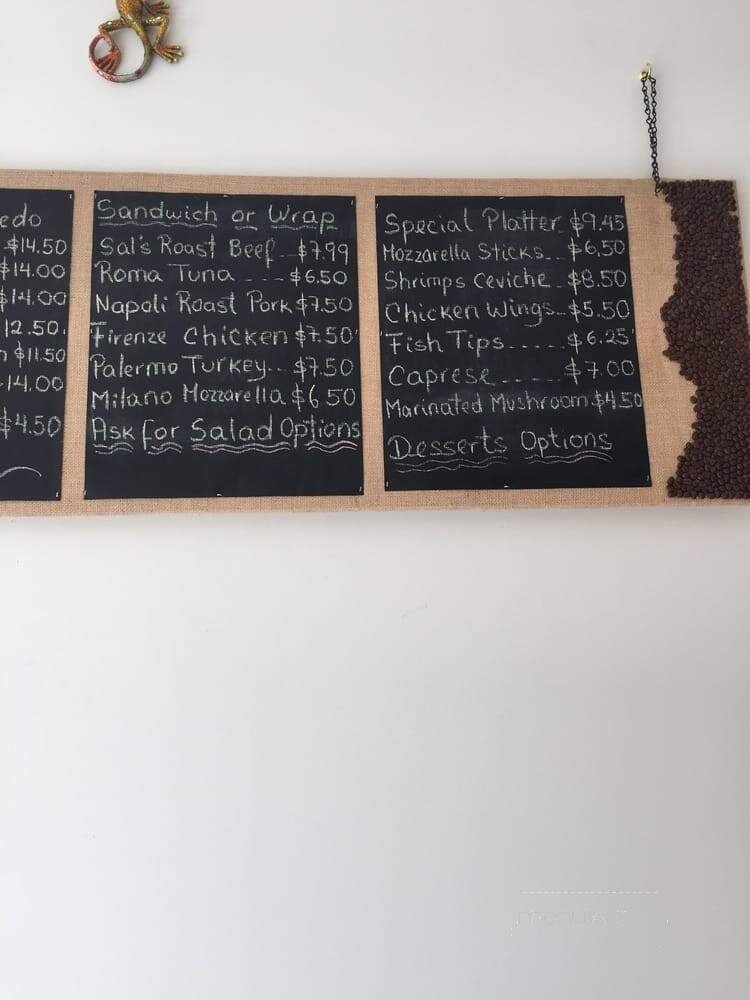 edo
$14.50
$14.00
14.00
12.50
$11.50
14.00
$4.50
Sandwich or Wrap
Sal's Roast Beef $7.99
Roma Tuna $6.50
Napoli Roast Pork $7.50
Firenze Chicken $7.50
Palermo Turkey... $7.50
Milano Mozzarella $6 50
Ask for Salad Options
Special Platter $9.45
Mozzarella Sticks.. $6.50
Shrimps Ceviche.. $8.50
Chicken Wings... $5.50
Fish Tips...... $6.25
Caprese....... $7.00
Marinated Mushroom $4.50
Desserts Options